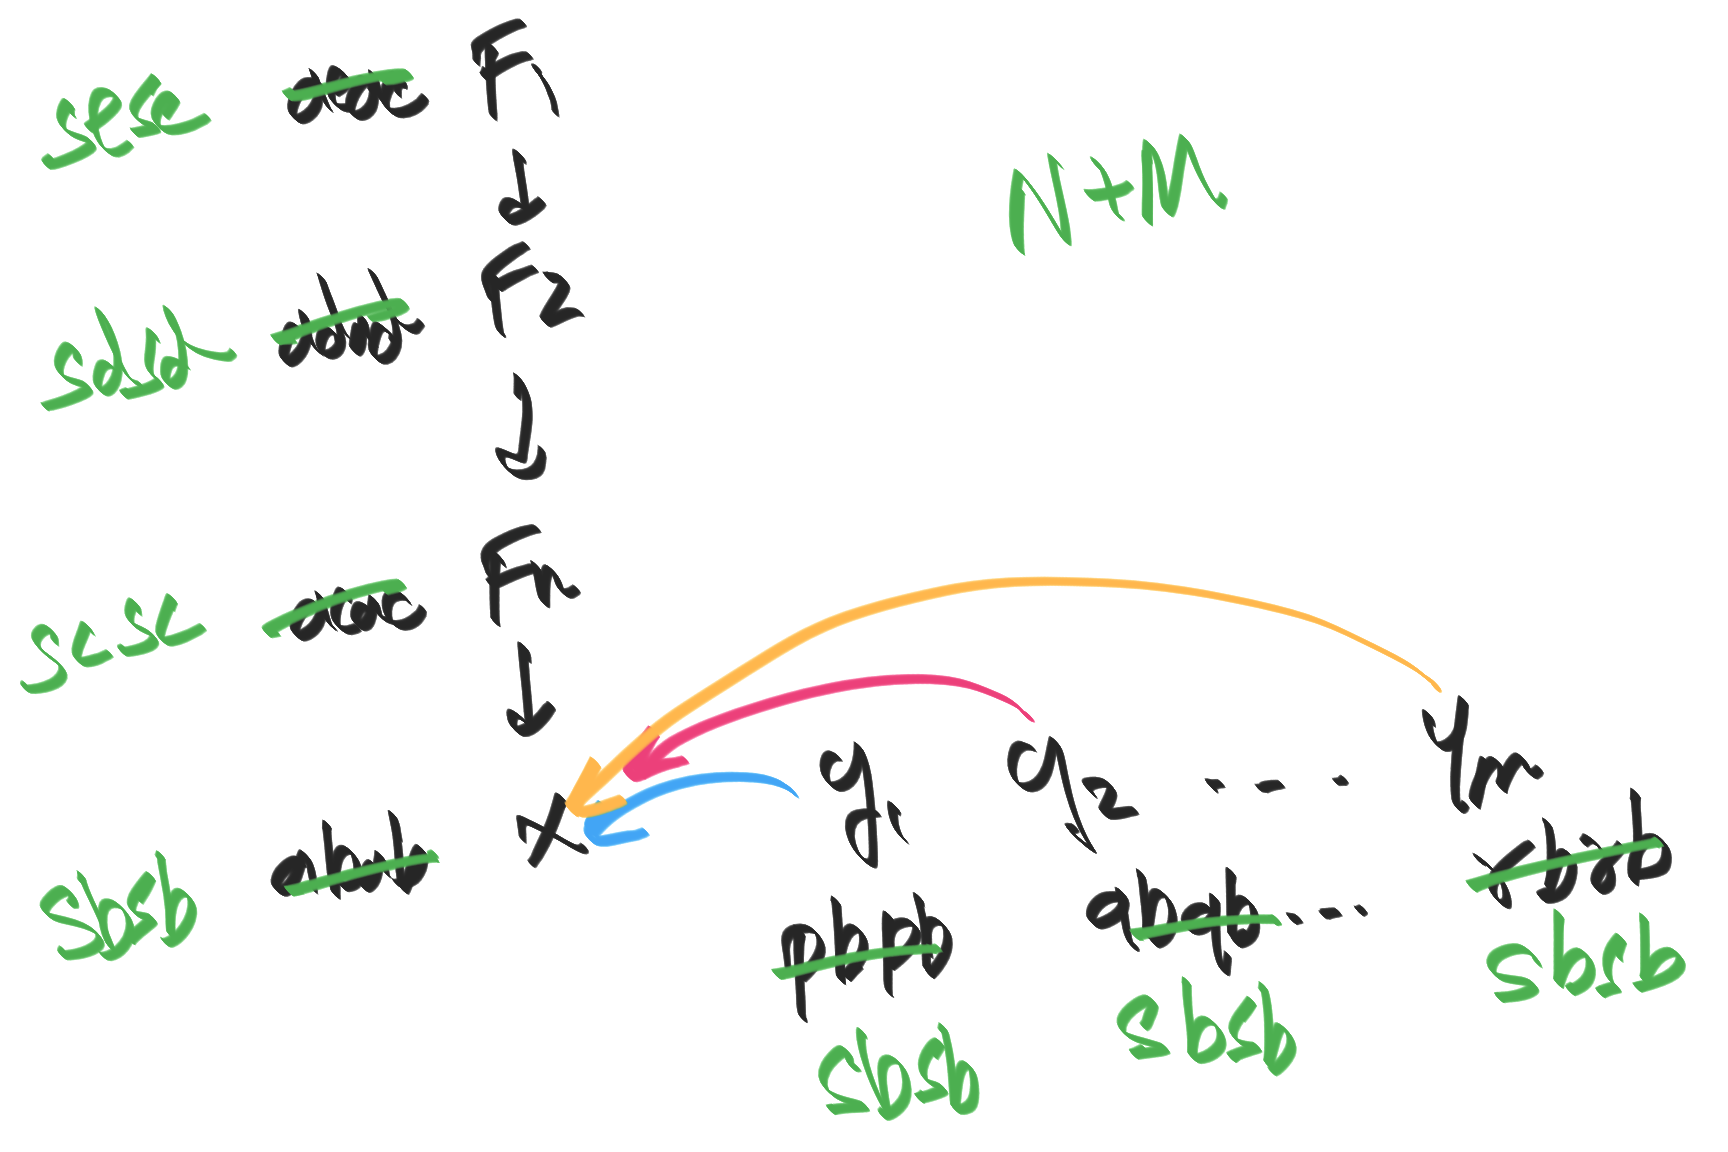 sese aeae F1
N+M
sdsd adad F2
scsc acac Fn
sbsb abab X y1 y2 ... ym
pbpb qbqb ... rbrb
sbsb sbsb sbsb